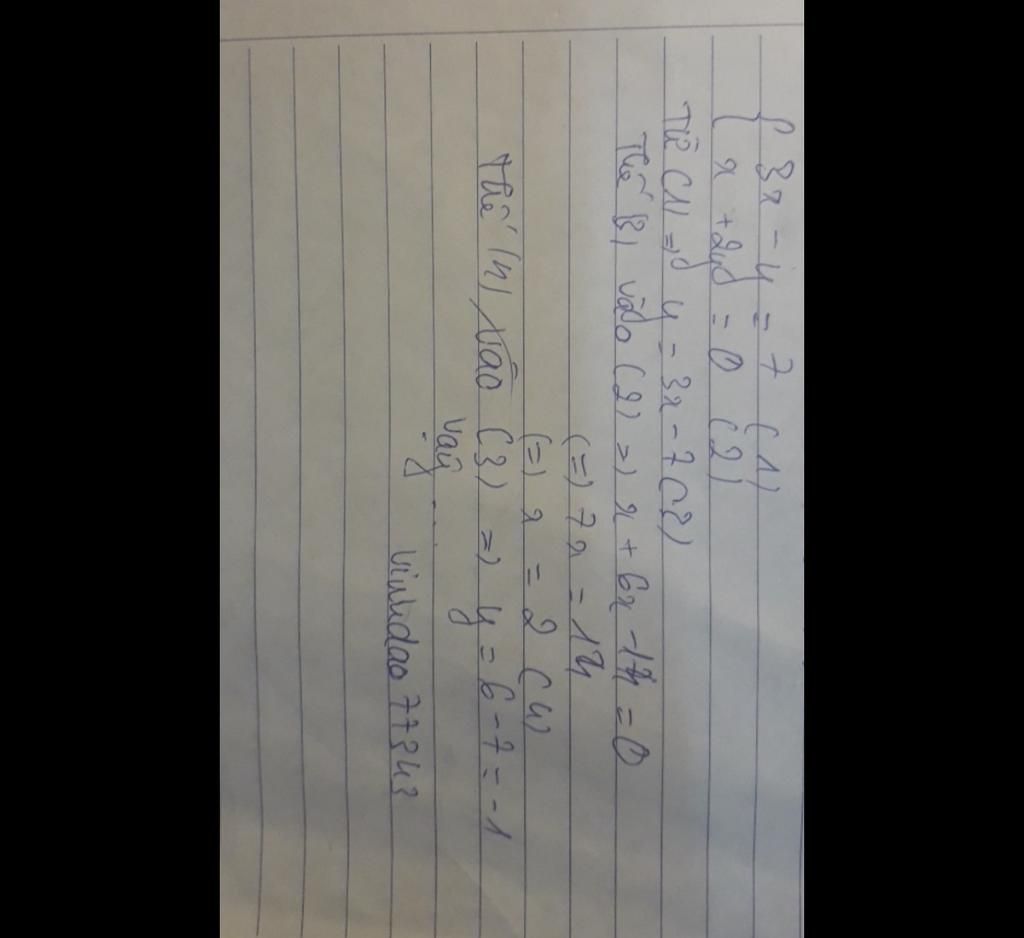 { 3x - y = 7 (1)
x + 2y = 0 (2)
Từ (1) => y = 3x - 7 (3)
Thế (3) vào (2) => x + 6x - 14 = 0
(=) 7x = 14
(=) x = 2 (4)
Thế (4) vào (3) => y = 6 - 7 = -1
Vậy ....
vinhdao77343